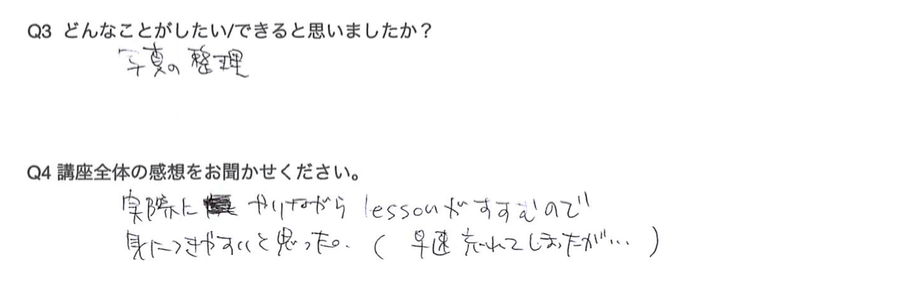 Q3 どんなことがしたい/できると思いましたか？
写真の整理
Q4 講座全体の感想をお聞かせください。
実際に やりながら lessonがすすむので
身につきやすいと思った。(早速忘れてしまったが…)